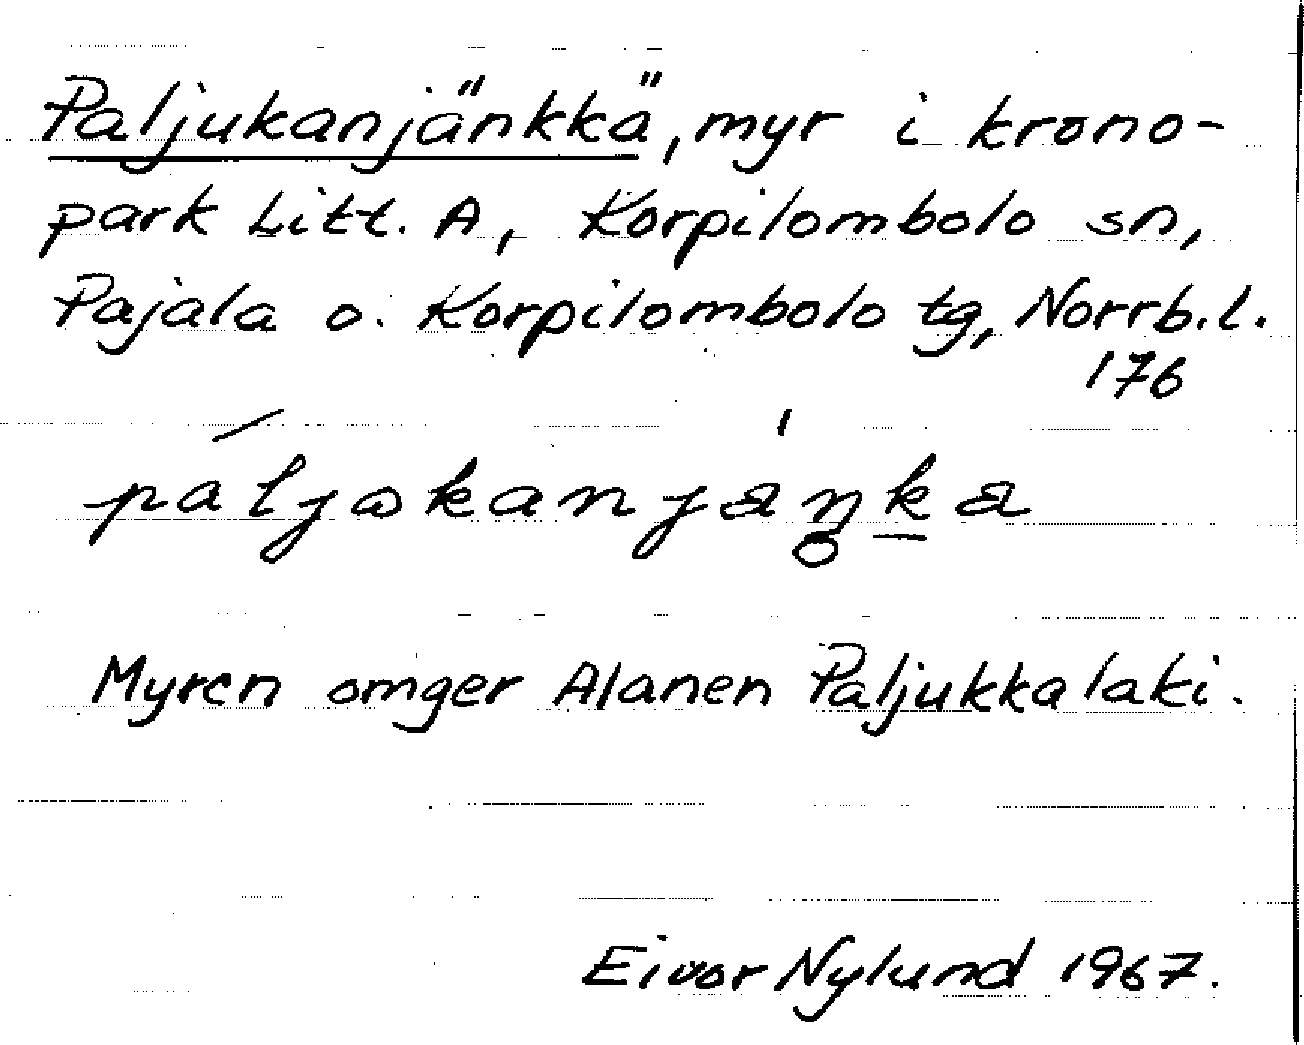 Paljukanjänkkä, myr i krono-
park Litt. A, Korpilombolo sn,
Pajala o. Korpilombolo tg, Norrb.l.
176
Myren omger Alanen Paljukkalaki.
Eivor Nylund 1967.